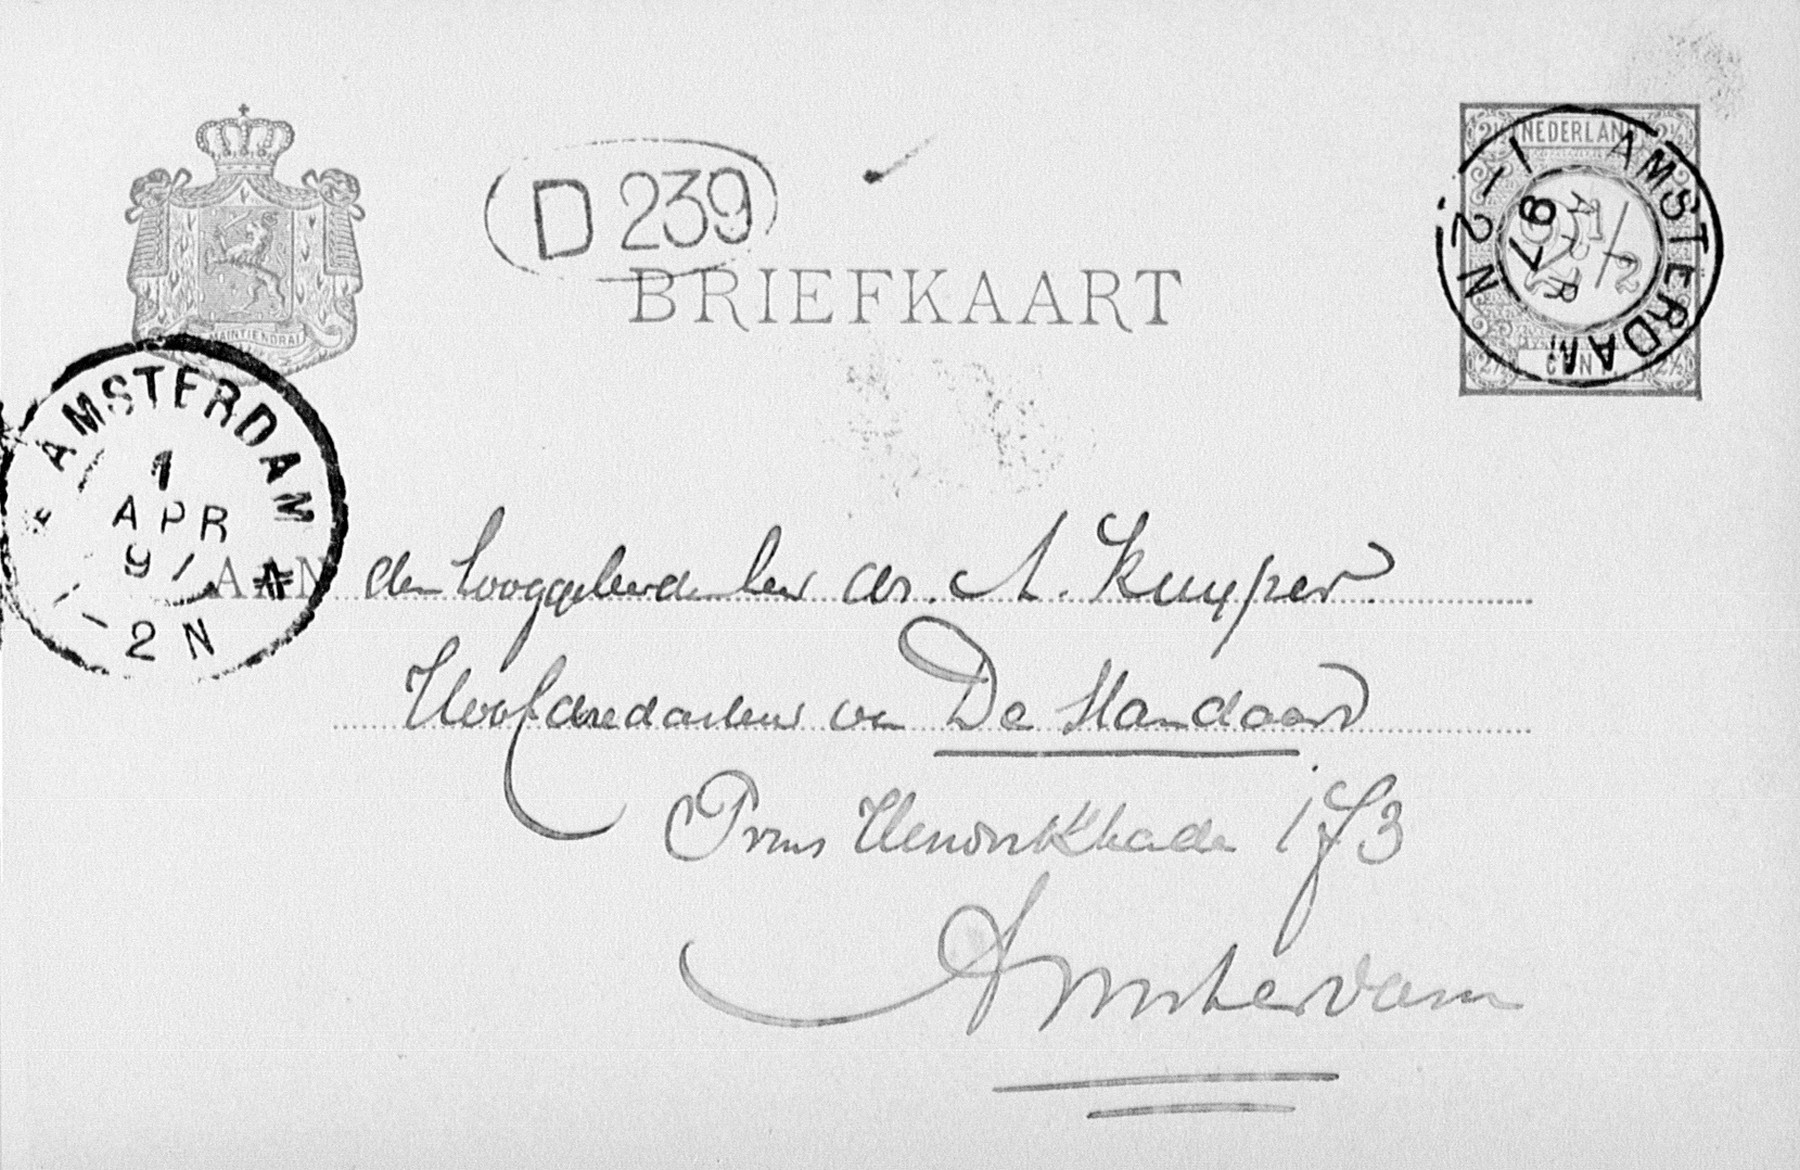 D 239
NEDERLAND
2½ 2½
AMSTERDAM
1 APR 97
1-2N
2½ CENT 2½
BRIEFKAART
MAINTIENDRAI
AMSTERDAM
1
APR
97
1-2N
AAN den Hooggeleerden heer dr. A. Kuyper.
Hoofdredacteur van De Standaard
Prins Hendrikkade 173
Amsterdam